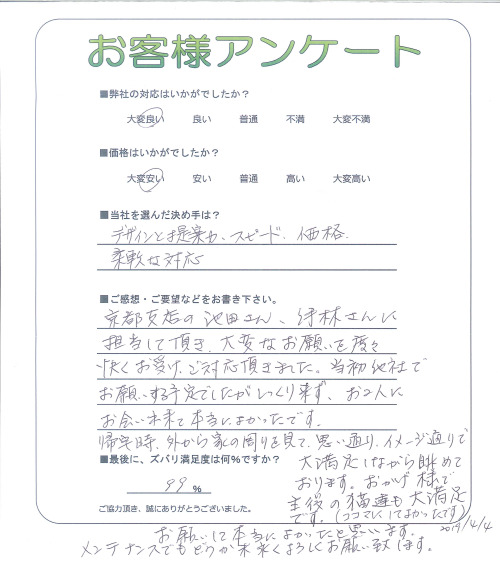 お客様アンケート
■弊社の対応はいかがでしたか？
大変良い 良い 普通 不満 大変不満
■価格はいかがでしたか？
大変安い 安い 普通 高い 大変高い
■当社を選んだ決め手は？
デザインと提案力、スピード、価格
柔軟な対応
■ご感想・ご要望などをお書き下さい。
京都支店の池田さん、 林さんに
担当して頂き、大変なお願いを度々
快くお受け、ご対応頂きました。当初他社で
お願いする予定でしたがしっくり来ず、お2人に
お会い出来て本当によかったです。
帰宅時、外から家の周りを見て、思い通り、イメージ通りで
大満足しながら眺めて
おります。おかげ様で
主役の猫達も大満足
です。(ココマにしてよかったです)
■最後に、ズバリ満足度は何%ですか？
99 %
ご協力頂き、誠にありがとうございました。
2019/4/4
お願いして本当によかったと思います。
メンテナンスでもどうか末永くよろしくお願い致します。